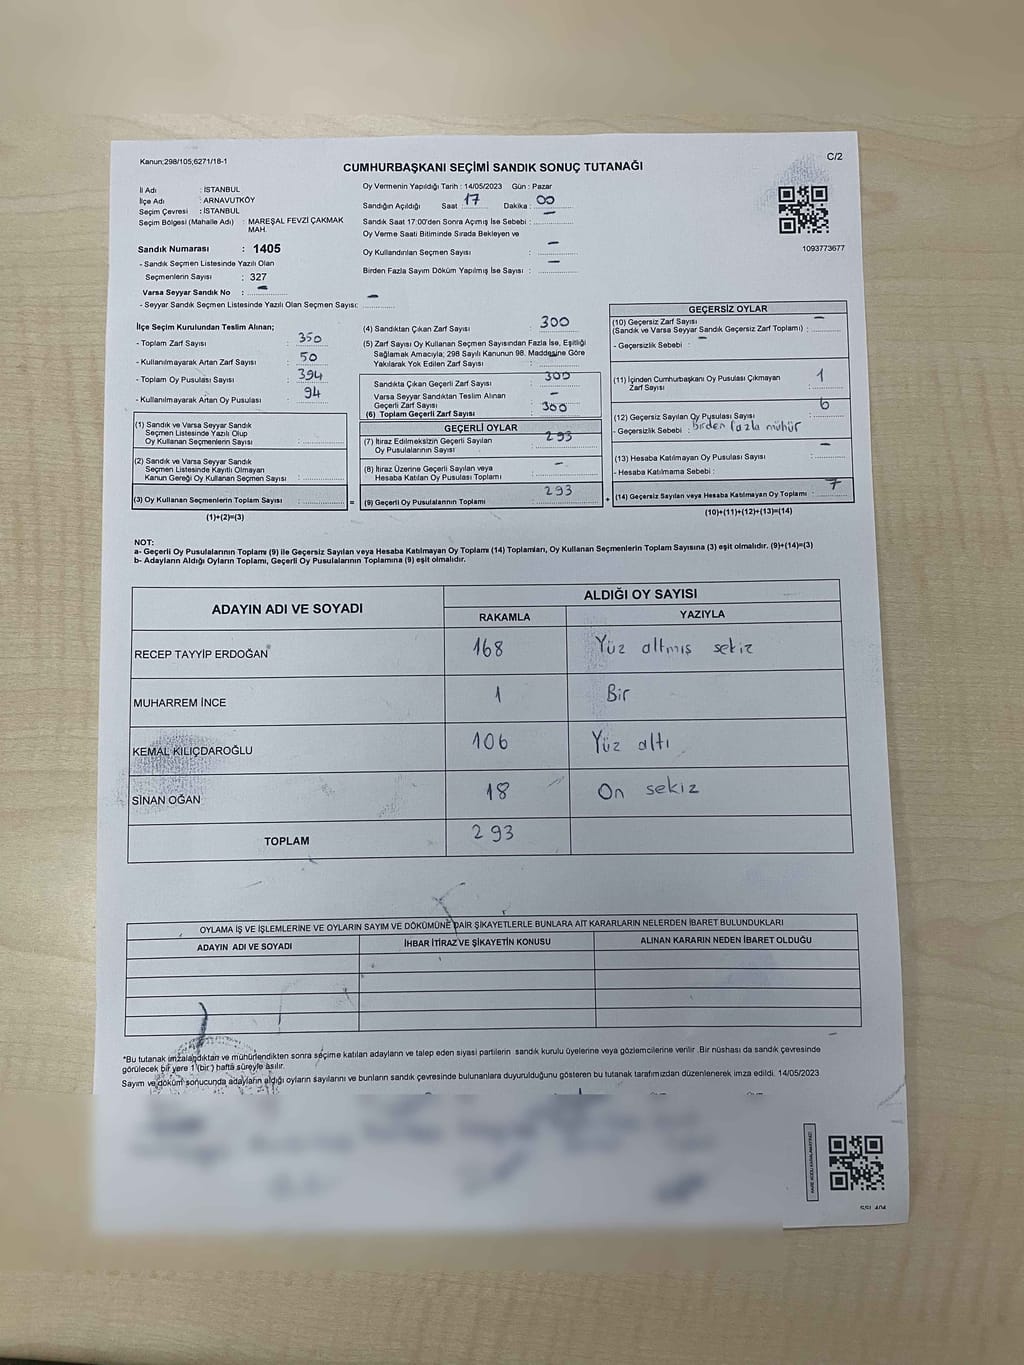 Kanun;298/105;6271/18-1
C/2
CUMHURBAŞKANI SEÇİMİ SANDIK SONUÇ TUTANAĞI
İl Adı : İSTANBUL
İlçe Adı : ARNAVUTKÖY
Seçim Çevresi : İSTANBUL
Seçim Bölgesi (Mahalle Adı) : MAREŞAL FEVZİ ÇAKMAK
MAH.
Sandık Numarası : 1405
- Sandık Seçmen Listesinde Yazılı Olan
Seçmenlerin Sayısı : 327
Varsa Seyyar Sandık No : -
- Seyyar Sandık Seçmen Listesinde Yazılı Olan Seçmen Sayısı: -
Oy Vermenin Yapıldığı Tarih : 14/05/2023 Gün : Pazar
Sandığın Açıldığı Saat : 17 Dakika : 00
Sandık Saat 17:00'den Sonra Açımış İse Sebebi : -
Oy Verme Saati Bitiminde Sırada Bekleyen ve
Oy Kullandırılan Seçmen Sayısı : -
Birden Fazla Sayım Döküm Yapılmış İse Sayısı : -
1093773677
İlçe Seçim Kurulundan Teslim Alınan;
- Toplam Zarf Sayısı : 350
- Kullanılmayarak Artan Zarf Sayısı : 50
- Toplam Oy Pusulası Sayısı : 394
- Kullanılmayarak Artan Oy Pusulası : 94
(1) Sandık ve Varsa Seyyar Sandık
Seçmen Listesinde Yazılı Olup
Oy Kullanan Seçmenlerin Sayısı :
(2) Sandık ve Varsa Seyyar Sandık
Seçmen Listesinde Kayıtlı Olmayan
Kanun Gereği Oy Kullanan Seçmen Sayısı :
(3) Oy Kullanan Seçmenlerin Toplam Sayısı :
(1)+(2)=(3)
(4) Sandıktan Çıkan Zarf Sayısı : 300
(5) Zarf Sayısı Oy Kullanan Seçmen Sayısından Fazla İse, Eşitliği
Sağlamak Amacıyla; 298 Sayılı Kanunun 98. Maddesine Göre
Yakılarak Yok Edilen Zarf Sayısı : -
Sandıkta Çıkan Geçerli Zarf Sayısı : 300
Varsa Seyyar Sandıktan Teslim Alınan
Geçerli Zarf Sayısı : -
(6) Toplam Geçerli Zarf Sayısı : 300
GEÇERLİ OYLAR
(7) İtiraz Edilmeksizin Geçerli Sayılan
Oy Pusulalarının Sayısı : 293
(8) İtiraz Üzerine Geçerli Sayılan veya
Hesaba Katılan Oy Pusulası Toplamı : -
(9) Geçerli Oy Pusulalarının Toplamı : 293
GEÇERSİZ OYLAR
(10) Geçersiz Zarf Sayısı
(Sandık ve Varsa Seyyar Sandık Geçersiz Zarf Toplamı) : -
- Geçersizlik Sebebi : -
(11) İçinden Cumhurbaşkanı Oy Pusulası Çıkmayan
Zarf Sayısı : 1
(12) Geçersiz Sayılan Oy Pusulası Sayısı : 6
- Geçersizlik Sebebi : Birden fazla mühür
(13) Hesaba Katılmayan Oy Pusulası Sayısı : -
- Hesaba Katılmama Sebebi :
(14) Geçersiz Sayılan veya Hesaba Katılmayan Oy Toplamı : 7
(10)+(11)+(12)+(13)=(14)
NOT:
a- Geçerli Oy Pusulalarının Toplamı (9) ile Geçersiz Sayılan veya Hesaba Katılmayan Oy Toplamı (14) Toplamları, Oy Kullanan Seçmenlerin Toplam Sayısına (3) eşit olmalıdır. (9)+(14)=(3)
b- Adayların Aldığı Oyların Toplamı, Geçerli Oy Pusulalarının Toplamına (9) eşit olmalıdır.
ADAYIN ADI VE SOYADI ALDIĞI OY SAYISI
RAKAMLA YAZIYLA
RECEP TAYYİP ERDOĞAN 168 Yüz altmış sekiz
MUHARREM İNCE 1 Bir
KEMAL KILIÇDAROĞLU 106 Yüz altı
SİNAN OĞAN 18 On sekiz
TOPLAM 293
OYLAMA İŞ VE İŞLEMLERİNE VE OYLARIN SAYIM VE DÖKÜMÜNE DAİR ŞİKAYETLERLE BUNLARA AİT KARARLARIN NELERDEN İBARET BULUNDUKLARI
ADAYIN ADI VE SOYADI İHBAR İTİRAZ VE ŞİKAYETİN KONUSU ALINAN KARARIN NEDEN İBARET OLDUĞU
*Bu tutanak imzalandıktan ve mühürlendikten sonra seçime katılan adayların ve talep eden siyasi partilerin sandık kurulu üyelerine veya gözlemcilerine verilir .Bir nüshası da sandık çevresinde
görülecek bir yere 1 (bir) hafta süreyle asılır.
Sayım ve döküm sonucunda adayların aldığı oyların sayılarını ve bunların sandık çevresinde bulunanlara duyurulduğunu gösteren bu tutanak tarafımızdan düzenlenerek imza edildi. 14/05/2023